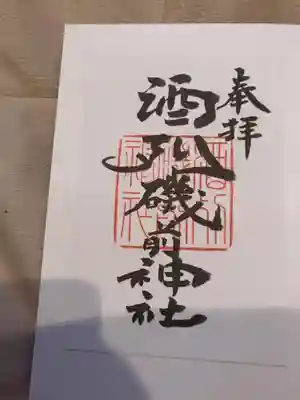 奉拝
酒列磯前神社